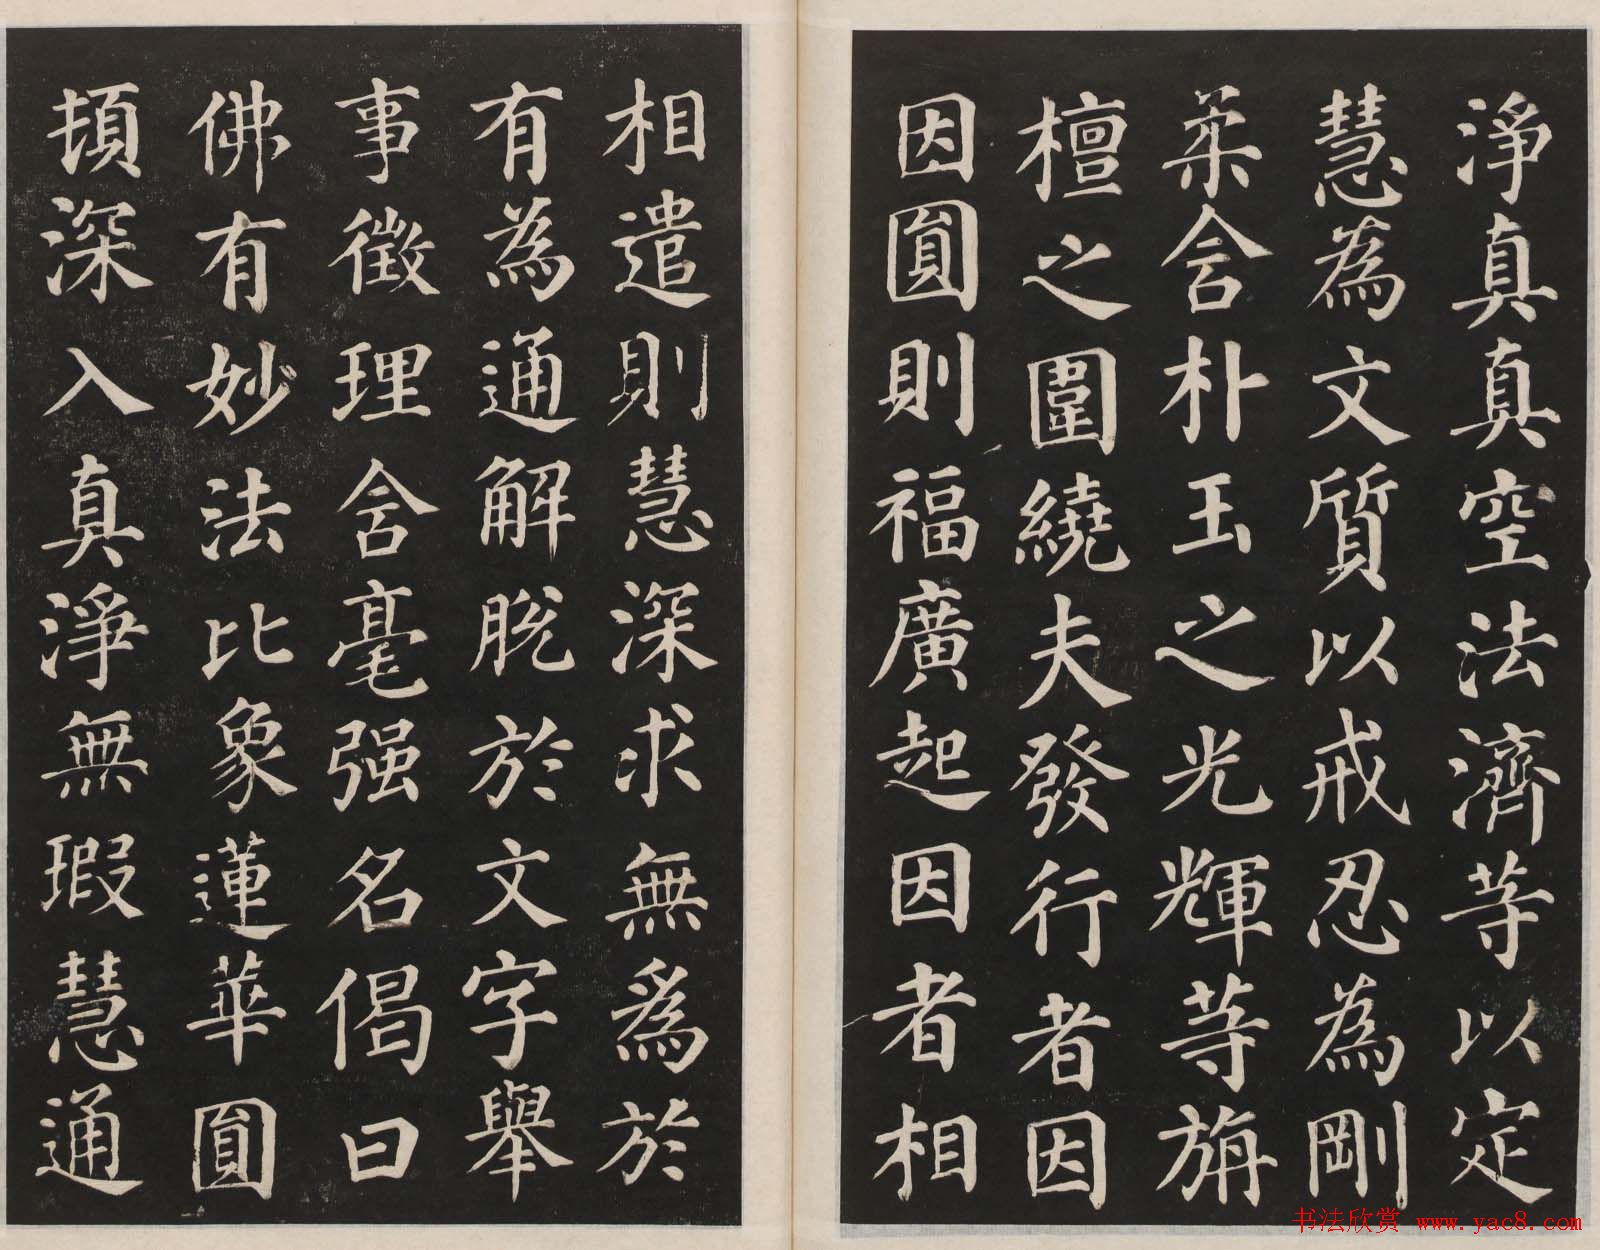 淨真真空法濟等以定
慧為文質以戒忍為剛
柔含朴玉之光輝等旃
檀之圍繞夫發行者因
因圓則福廣起因者相
相遣則慧深求無為於
有為通解脫於文字舉
事徵理含毫强名偈曰
佛有妙法比象蓮華圓
頓深入真淨無瑕慧通
书法欣赏 www.yac8.com